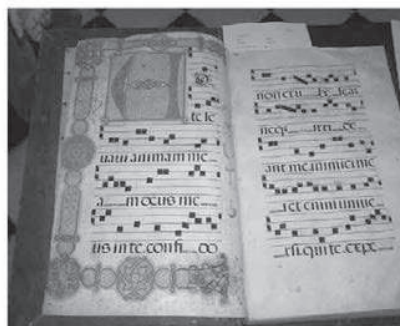 te le
uaui animam me
a m deus me
us in te confi do
non eru be scar
neqz irri de
ant me inimici me
i et eniui uniue
rsi qui te expe